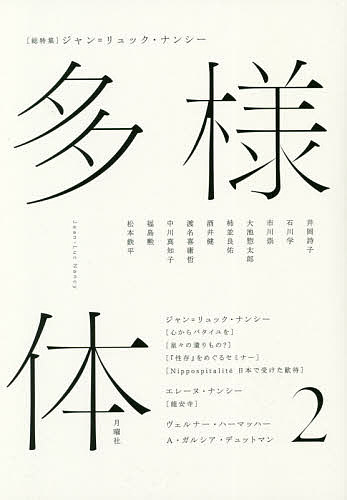 ［総特集］ジャン＝リュック・ナンシー
多様体
2
Jean-Luc Nancy
井岡詩子
石川学
市川崇
大池惣太郎
柿並良佑
酒井健
渡名喜庸哲
中川真知子
福島勲
松本鉄平
ジャン＝リュック・ナンシー
［心からバタイユを］
［『性存』をめぐるセミナー］
［Nippospitalité 日本で受けた歓待］
エレーヌ・ナンシー
［龍安寺］
ヴェルナー・ハーマッハー
A・ガルシア・デュットマン
月曜社